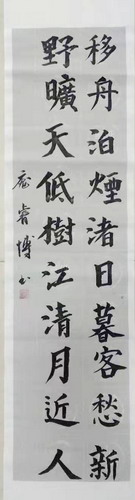 移舟泊煙渚日暮客愁新
野曠天低樹江清月近人
睿博書